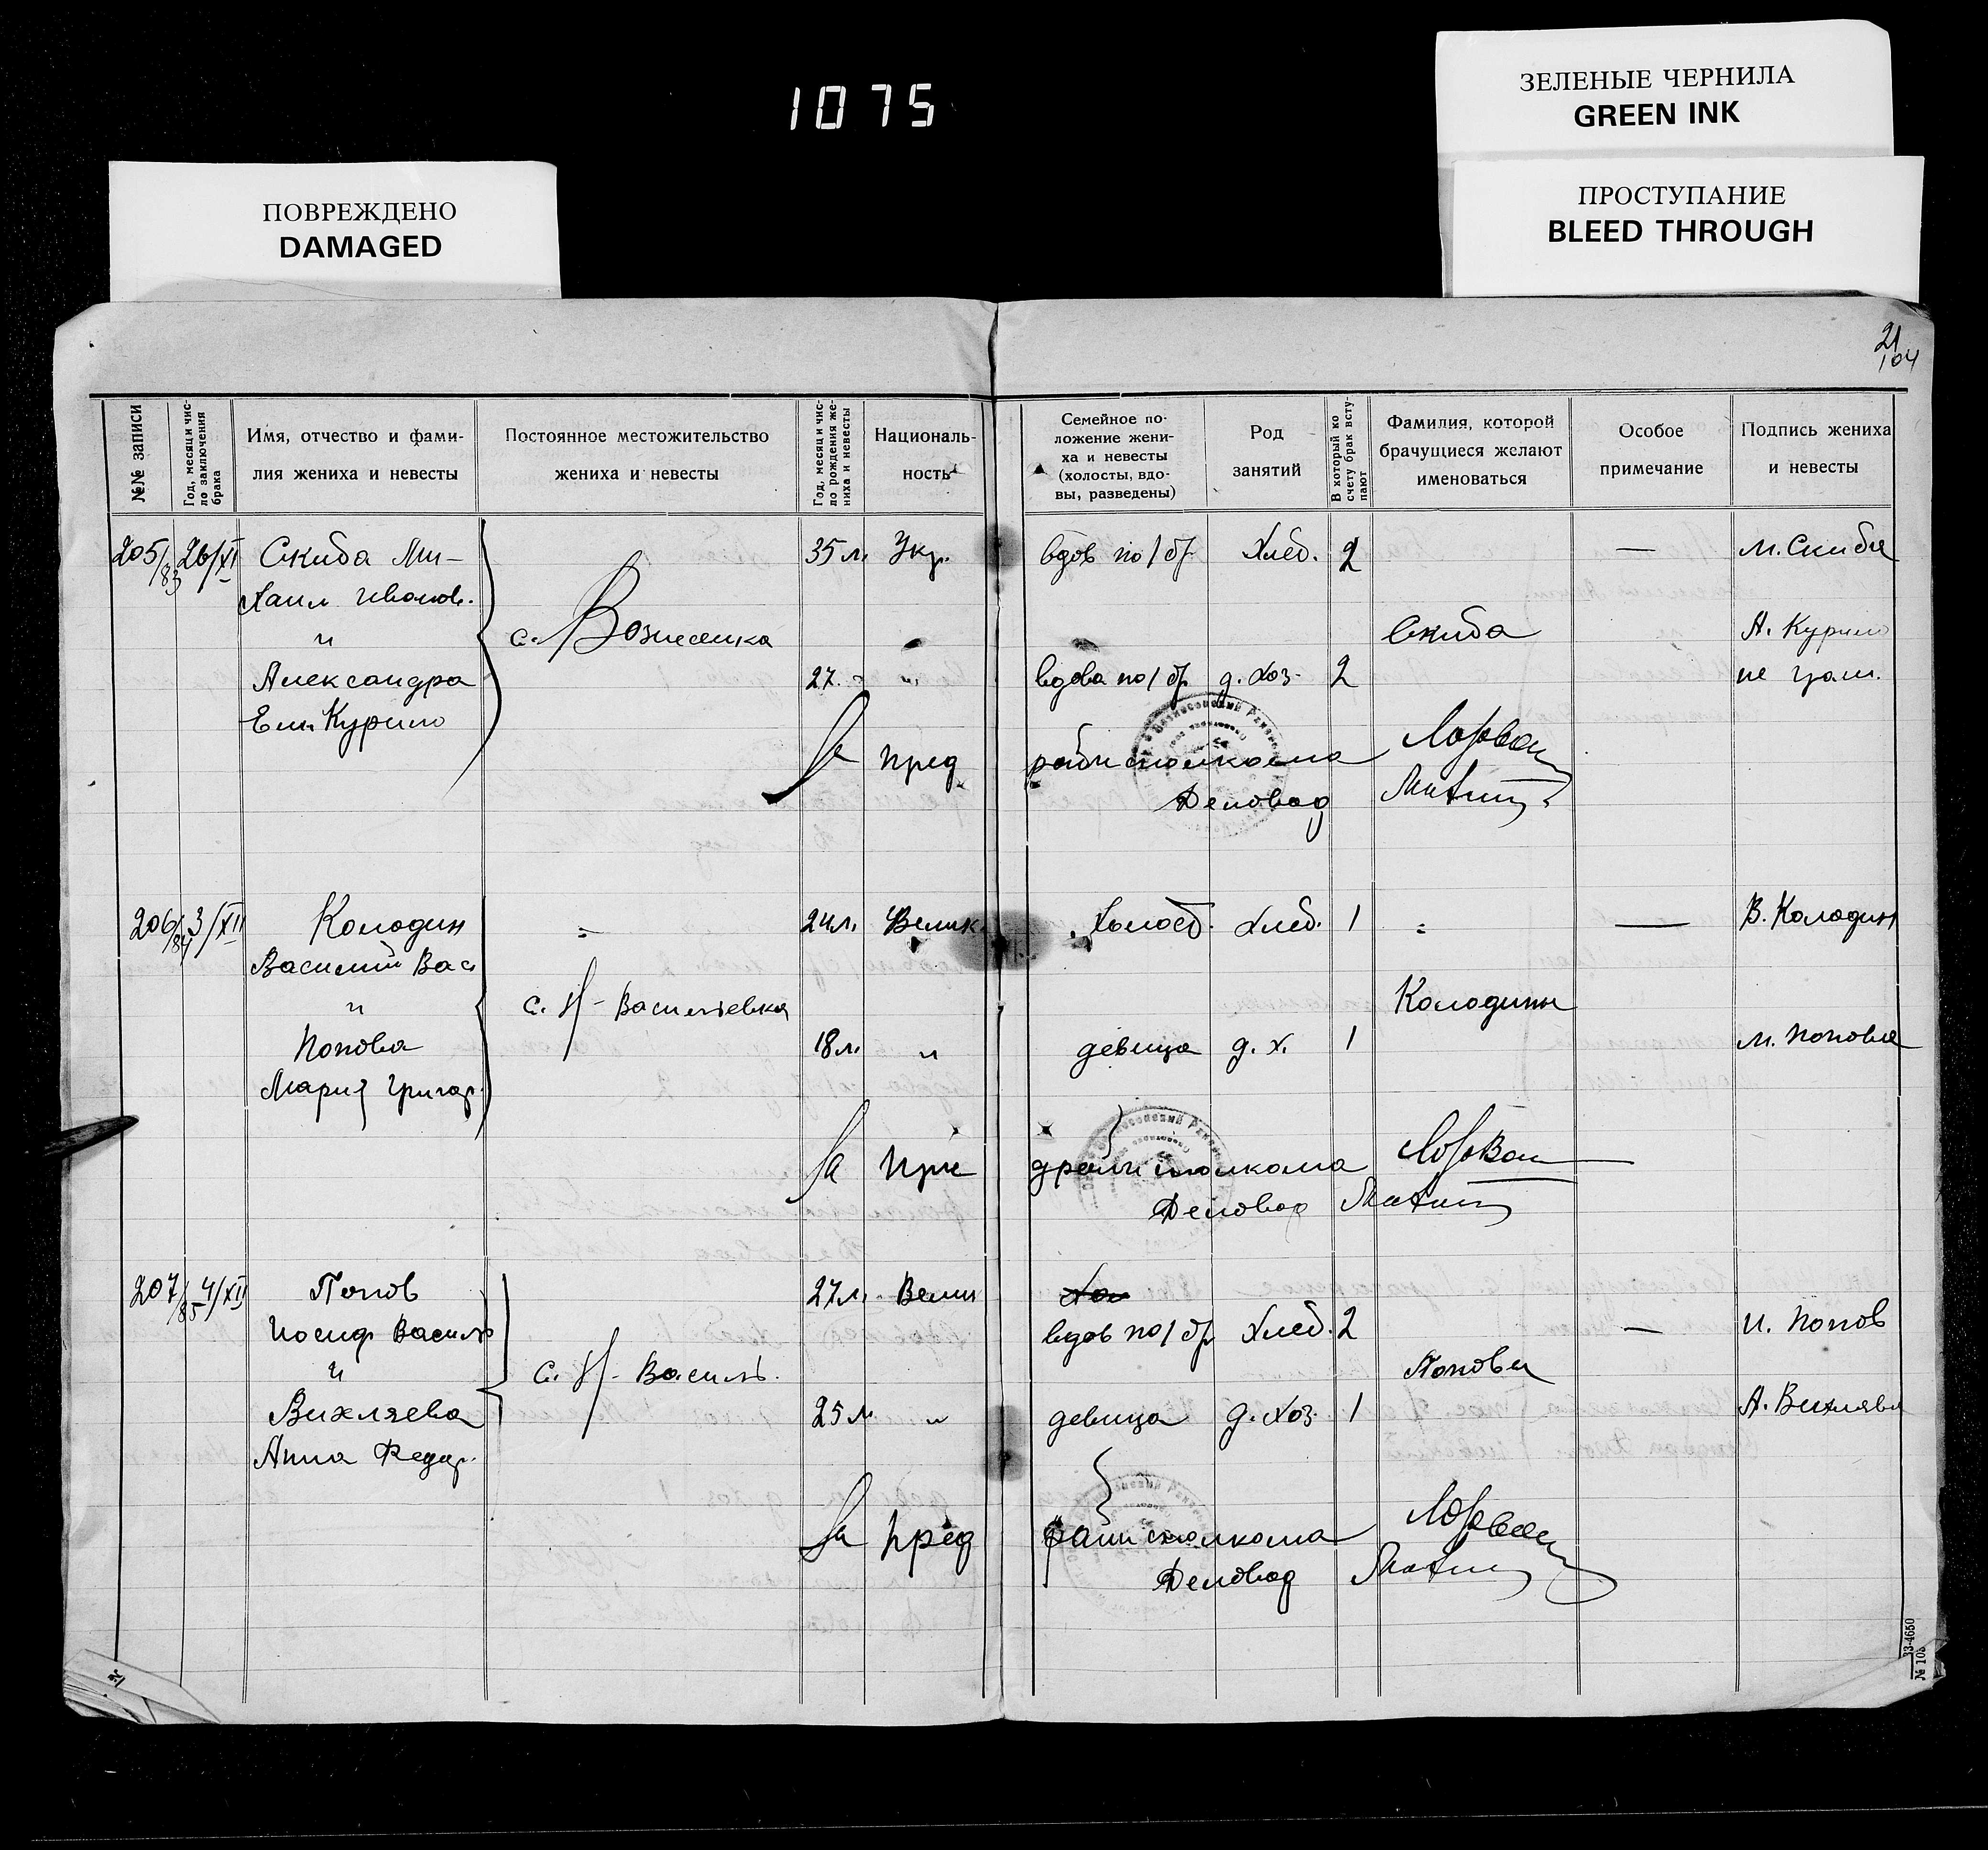 1075
ЗЕЛЕНЫЕ ЧЕРНИЛА
GREEN INK
ПОВРЕЖДЕНО
DAMAGED
ПРОСТУПАНИЕ
BLEED THROUGH
21
104
№№ записи
Год, месяц и чис-
ло заключения
брака
Имя, отчество и фами-
лия жениха и невесты
Постоянное местожительство
жениха и невесты
Год, месяц и чис-
ло рождения же-
ниха и невесты
Националь-
ность
Семейное по-
ложение жени-
ха и невесты
(холосты, вдо-
вы, разведены)
Род
занятий
В который ко
счету брак всту-
пают
Фамилия, которой
брачущиеся желают
именоваться
Особое
примечание
Подпись жениха
и невесты
205/83 26/XI Скиба Ми- 35 л. Укр. вдов по 1 бр. Хлеб. 2 — М. Скиба
хаил Иванов.
и с. Вознесенка Скиба А. Курило
Александра 27 " вдова по 1 бр. д. хоз. 2 не грам.
Ем. Курило
За пред райисполкома
Деловод
206/84 3/XII Колодин " 24 л. Велик. Холост. хлеб. 1 " — В. Колодин
Василий Вас
и с. Н-Васильевка Колодины
Попова 18 л. " девица д. х. 1 М. Попова
Мария Григор.
За пре д райисполкома
Деловод
207/85 4/XII Попов 27 л. Велик Хол
Иосиф Василь вдов по 1 бр. Хлеб. 2 — И. Попов
и с. Н-Василь. Поповы
Вихляева 25 л " девица д. хоз. 1 А. Вихляева
Анна Федор.
За пред райисполкома
Деловод
33-4650